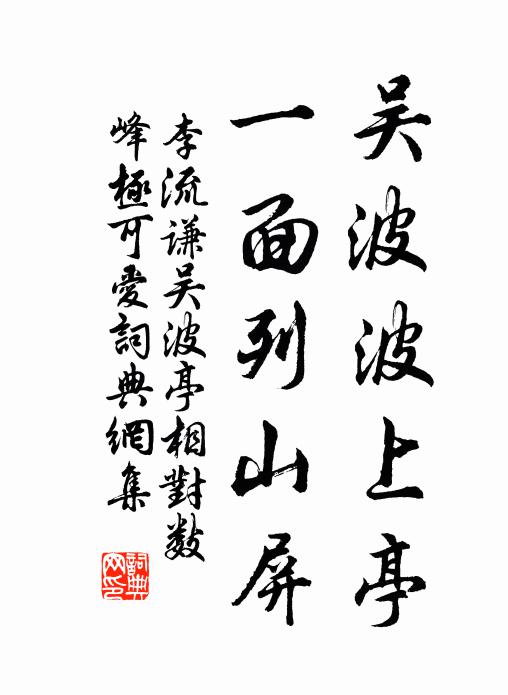 吴波波上亭
一面列山屏
李流谦吴波亭相對数
峰極可愛詞典網集
詞典
网印